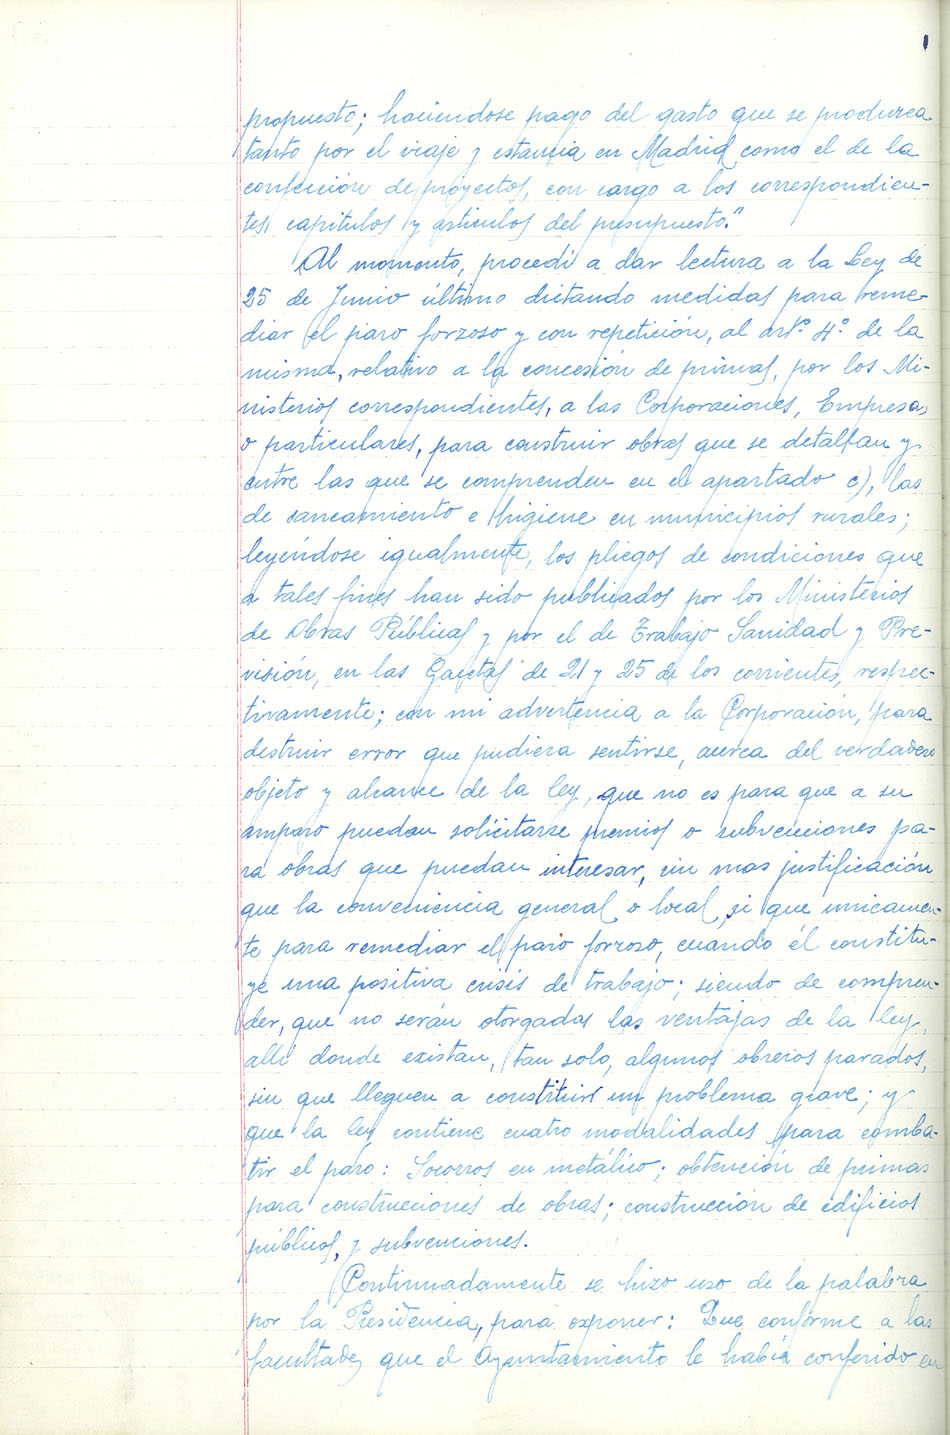 propuesto; haciendose pago del gasto que se produzca
tanto por el viaje y estancia en Madrid como el de la
confección de proyectos, con cargo a los correspondien-
tes capítulos y artículos del presupuesto."
Al momento, procedí a dar lectura a la Ley de
25 de Junio último dictando medidas para reme-
diar el paro forzoso y con repetición, al artº 4º de la
misma, relativo a la concesión de primas, por los Mi-
nisterios correspondientes, a las Corporaciones, Empresas
o particulares, para construir obras que se detallan y
entre las que se comprenden en el apartado c), las
de saneamiento e higiene en municipios rurales;
leyéndose igualmente, los pliegos de condiciones que
a tales fines han sido publicados por los Ministerios
de Obras Públicas y por el de Trabajo Sanidad y Pre-
visión, en las Gacetas de 21 y 25 de los corrientes, respec-
tivamente; con mi advertencia a la Corporación, para
destruir error que pudiera sentirse, acerca del verdadero
objeto y alcance de la ley, que no es para que a su
amparo puedan solicitarse premios o subvenciones pa-
ra obras que puedan interesar, sin mas justificación
que la conveniencia general o local, si que unicamen-
te para remediar el paro forzoso, cuando él constitu-
ye una positiva crisis de trabajo; siendo de compren-
der, que no serán otorgadas las ventajas de la ley,
allí donde existan, tan solo, algunos obreros parados,
sin que lleguen a constituir un problema grave; y
que la ley contiene cuatro modalidades para comba-
tir el paro: Socorros en metálico; obtención de primas
para construcciones de obras; construcción de edificios
públicos, y subvenciones.
Continuadamente se hizo uso de la palabra
por la Presidencia, para exponer: Que conforme a las
facultades que el Ayuntamiento le había conferido en